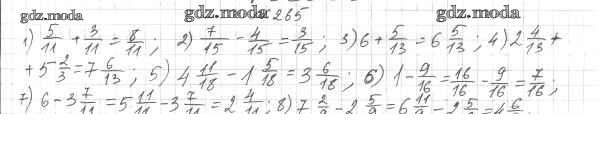 gdz.moda gdz.moda 265 gdz.moda
1) 5/11 + 3/11 = 8/11 ; 2) 7/15 - 4/15 = 3/15 ; 3) 6 + 5/13 = 6 5/13 ; 4) 2 4/13 +
+ 5 2/3 = 7 6/13 ; 5) 4 11/18 - 1 5/18 = 3 6/18 ; 6) 1 - 9/16 = 16/16 - 9/16 = 7/16 ;
7) 6 - 3 7/11 = 5 11/11 - 3 7/11 = 2 4/11 ; 8) 7 2/9 - 2 5/9 = 6 11/9 - 2 5/9 = 4 6/9 ;